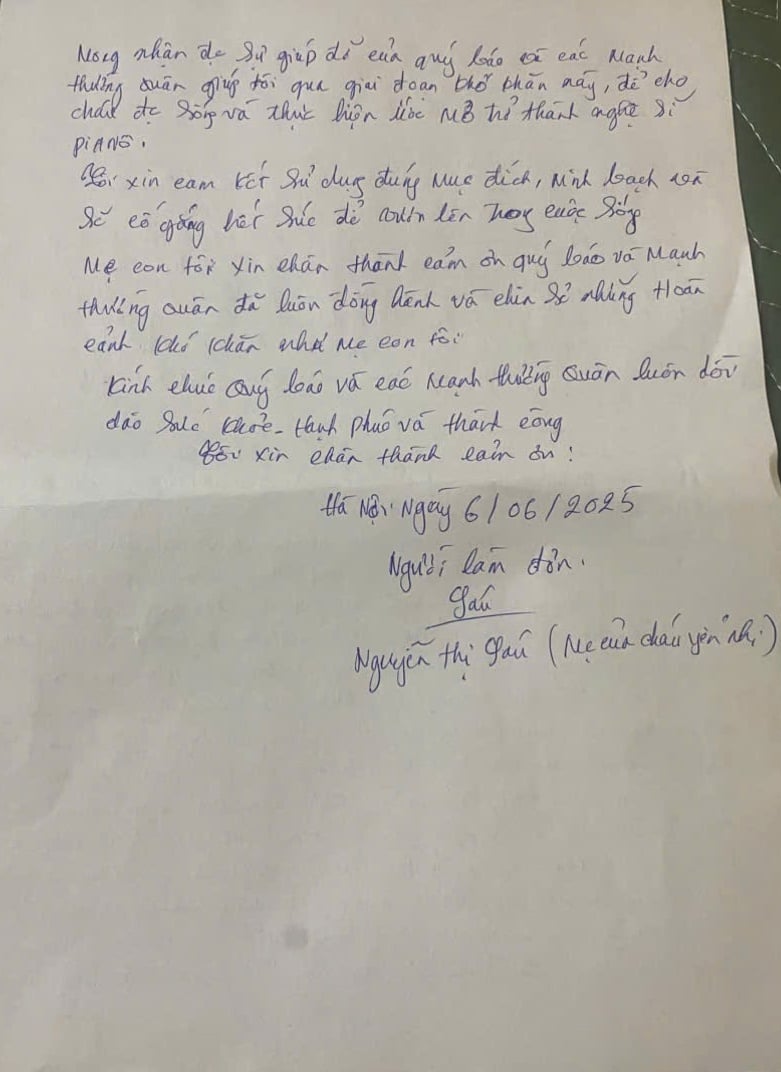 Mong nhận đc sự giúp đỡ của quý báo và các Mạnh
thường quân giúp tôi qua giai đoạn khó khăn này, để cho
cháu đc sống và thực hiện ước mơ trở thành nghệ sĩ
PIANO.
Tôi xin cam kết sử dụng đúng mục đích, minh bạch và
sẽ cố gắng hết sức để vươn lên trong cuộc sống
Mẹ con tôi xin chân thành cảm ơn quý báo và Mạnh
thường quân đã luôn đồng hành và chia sẻ những Hoàn
cảnh khó khăn như mẹ con tôi
Kính chúc quý báo và các Mạnh thường quân luôn dồi
dào sức khỏe - hạnh phúc và thành công
Tôi xin chân thành cảm ơn!
Hà Nội. Ngày 6/06/2025
Người làm đơn.
Sáu
Nguyễn Thị Sáu (Mẹ của cháu yến nhi)